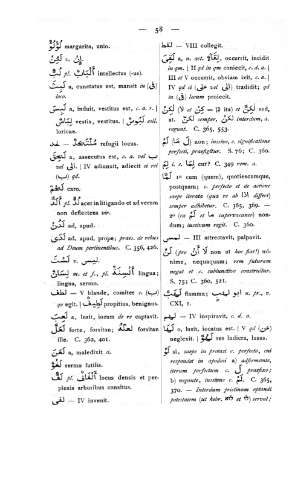 — 58 —
لُؤْلُؤٌ margarita, unio.
لُبٌّ pl. أَلْبَابٌ intellectus (-us).
a, cunctatus est, mansit de (فى)
loco.
لَبِسَ a, induit, vestitus est, c. a. r. |
لِبَاسٌ vestis, vestitus. | لَبُوسٌ coll.
loricae.
refugii locus.
a, assecutus est, c. a. vel ب
vel الى | IV adiunxit, adiecit a rei
(ب) qd.
لَحْمٌ caro.
pl. لُدٌّ acer in litigando et ad verum
non deflectens vir.
لَدُنْ ad, apud.
لَدَى ad, apud, prope; praes. de rebus
ad Deum pertinentibus. C. 356, 426.
لَسْتَ v. لَيْسَ.
لِسَانٌ m. et f., pl. أَلْسِنَةٌ lingua;
lingua, sermo.
لطف — V blande, comiter c. (ب)
qo egit. | لَطِيفٌ propitius, benignus.
لَعِبَ a, lusit, iocum de re captavit.
لَعَلَّ forte, forsitan; لَعَلَّهُ forsitan
ille. C. 362, 401.
لَعَنَ a, maledixit a.
لَغْوٌ sermo futilis.
pl. أَلْفَافٌ locus densis et per-
plexis arboribus consitus.
لفى — IV invenit.
لقط — VIII collegit.
لَقِىَ a, n. act. لِقَاءٌ, occurrit, incidit
in qm. | II qd in qm coniecit, c. d. a. |
III et V occurrit, obviam ivit, c. a. |
IV qd a (على vel الى) tradidit; qd
in (فى) locum proiecit.
لٰكِنْ (لا et كِنْ = כן ita) et لٰكِنَّ sed,
at. لٰكِنَّ semper, لٰكِنْ interdum, a.
regunt. C. 365, 553.
لَمْ (لا et ما) non; iussivo, c. significatione
perfecti, praefigitur. S. 76; C. 360.
لِمَ i. q. لِمَا cur? C. 349 rem. a.
لَمَّا 1º cum (quum), quotiescumque,
postquam; c. perfecto et de actione
saepe iterata (quo re ab إِذَا differt)
semper adhibetur. C. 365, 369. —
2º (ex لَمْ et ما superveniente) non-
dum; iussivum regit. C. 360.
— III attrectavit, palpavit.
لَنْ (pro لا أَنْ non ut hoc fiat) mi-
nime, nequaquam; rem futuram
negat et c. subiunctivo construitur.
S. 75; C. 360, 521.
لَهَبٌ flamma; أَبُو لَهَبٍ n. pr., v.
CXI, 1.
لهم — IV inspiravit, c. d. a.
a, lusit, iocatus est. | V qd (عن)
neglexit. | لَهْوٌ res ludicra, lusus.
لَوْ si, saepe in protasi c. perfecto, cui
respondet in apodosi a) adfirmante,
iterum perfectum c. لَ praefixo;
b) negante, iussivus c. لَمْ. C. 365,
370. — Interdum pristinam optandi
potestatem (ut hebr. לוא et לו) servat;